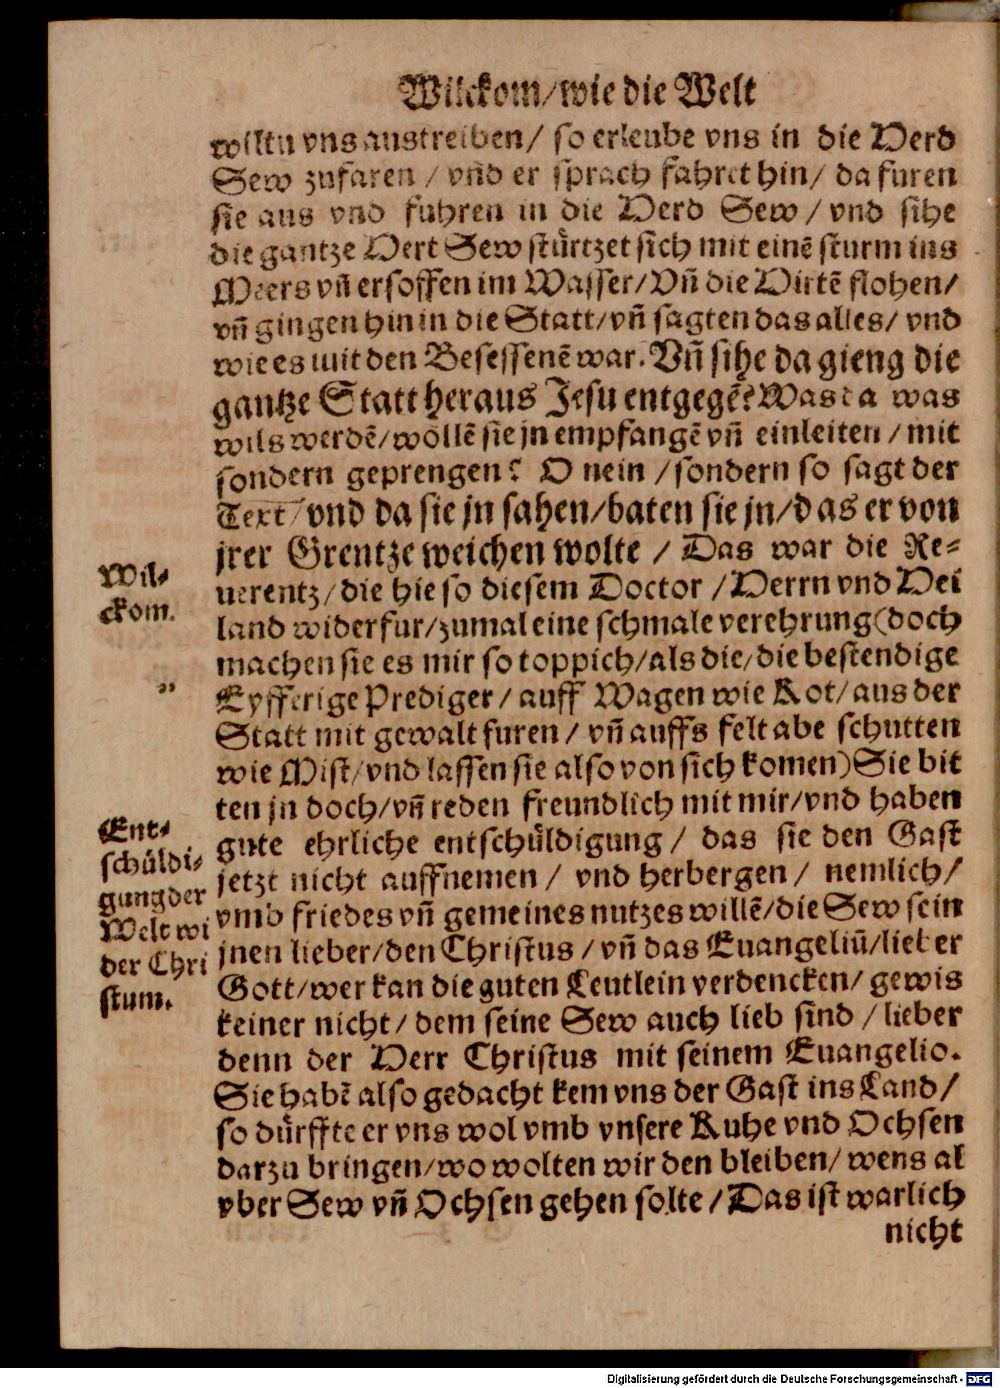 Wilckom/wie die Welt
wiltu vns austreiben/ so erleube vns in die Herd
Sew zufaren / vnd er sprach fahret hin/ da furen
sie aus vnd fuhren in die Herd Sew / vnd sihe
die gantze Hert Sew stürtzet sich mit einē sturm ins
Meers vñ ersoffen im Wasser/ Vñ die Hirtē flohen/
vñ gingen hin in die Statt/ vñ sagten das alles/ vnd
wie es mit den Besessenē war. Vñ sihe da gieng die
gantze Statt heraus Jesu entgegē? Was da was
wils werdē/ wöllē sie jn empfangē vñ einleiten / mit
sondern geprengen? O nein / sondern so sagt der
Text/ vnd da sie jn sahen/ baten sie jn/ das er von
jrer Grentze weichen wolte / Das war die Re-
uerentz/ die hie so diesem Doctor / Herrn vnd Hei
land widerfur/ zumal eine schmale verehrung (doch
machen sie es mir so toppich/ als die/ die bestendige
Eyfferige Prediger / auff Wagen wie Kot/ aus der
Statt mit gewalt furen / vñ auffs felt abe schutten
wie Mist/ vnd lassen sie also von sich komen) Sie bit
ten jn doch/ vñ reden freundlich mit mir/ vnd haben
gute ehrliche entschüldigung / das sie den Gast
jetzt nicht auffnemen / vnd herbergen / nemlich/
vmb friedes vñ gemeines nutzes willē/ die Sew sein
jnen lieber/ den Christus / vñ das Euangeliū/ lieber
Gott/ wer kan die guten Leutlein verdencken/ gewis
keiner nicht / dem seine Sew auch lieb sind / lieber
denn der Herr Christus mit seinem Euangelio.
Sie habē also gedacht kem vns der Gast ins Land/
so dürffte er vns wol vmb vnsere Kuhe vnd Ochsen
darzu bringen/ wo wolten wir den bleiben/ wens al
vber Sew vñ Ochsen gehen solte / Das ist warlich
nicht
Wil-
ckom.
"
Ent-
schüldi-
gung der
Welt wi
der Chri
stum.
Digitalisierung gefördert durch die Deutsche Forschungsgemeinschaft - DFG